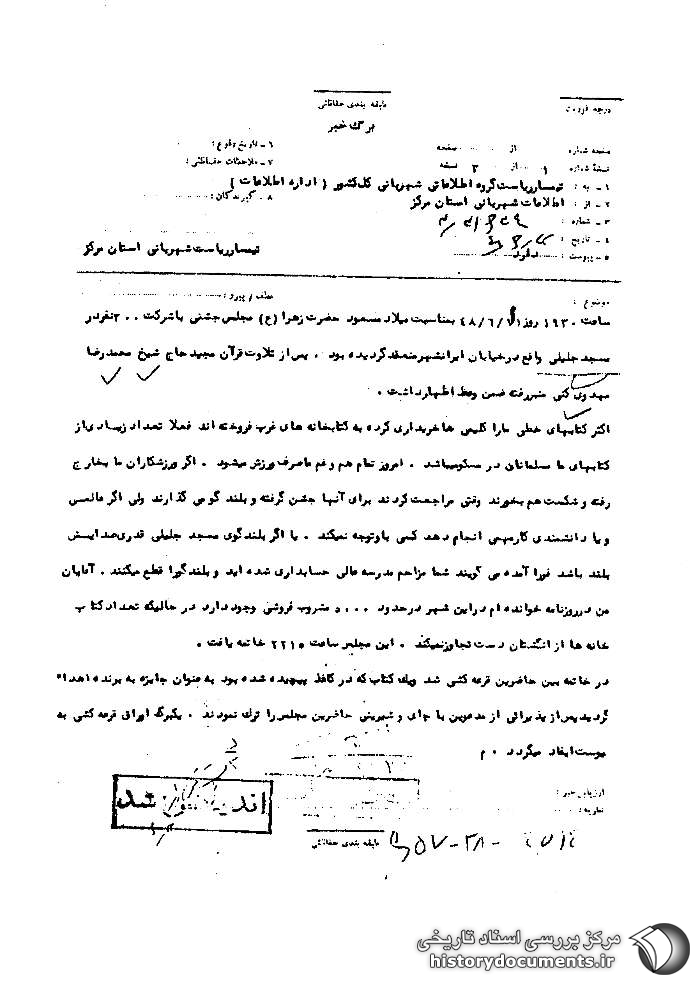 درجه فوریت
طبقه بندی حفاظتی
برگ خبر
صفحه شماره از صفحه
نسخه شماره ۱ از ۳ نسخه
۱ - به : تیمسار ریاست گروه اطلاعاتی شهربانی کل کشور ( اداره اطلاعات )
۲ - از : اطلاعات شهربانی استان مرکز
۳ - شماره :
۴ - تاریخ :
۵ - پیوست : دارد
۶ - تاریخ وقوع :
۷ - ملاحظات حفاظتی :
۸ - گیرندگان :
تیمسار ریاست شهربانی استان مرکز
موضوع : عطف / پیرو :
ساعت ۱۹۳۰ روز ۴۸/۶/ بمناسبت میلاد مسعود حضرت زهرا (ع) مجلس جشنی با شرکت ۲۰۰ نفر در
مسجد جلیلی واقع در خیابان ایرانشهر منعقد گردیده بود . پس از تلاوت قرآن مجید حاج شیخ محمد رضا
مهدوی کنی منبر رفته ضمن وعظ اظهار داشت .
اکثر کتابهای خطی ما را کلیمی ها خریداری کرده به کتابخانه های غرب فروخته اند فعلا تعداد زیادی از
کتابهای ما مسلمانان در مسکو میباشد . امروز تمام هم و غم ما صرف ورزش میشود . اگر ورزشکاران ما بخارج
رفته و شکست هم بخورند وقتی مراجعت کردند برای آنها جشن گرفته و بلند گو می گذارند ولی اگر عالمی
و یا دانشمندی کار مهمی انجام دهد کسی باو توجه نمیکند . یا اگر بلند گوی مسجد جلیلی قدری صدایش
بلند باشد فورا آمده می گویند شما مزاحم مدرسه عالی حسابداری شده اید و بلند گو را قطع میکنند . آقایان
من در روزنامه خوانده ام در این شهر در حدود ۵۰۰۰ مشروب فروشی وجود دارد در حالیکه تعداد کتاب
خانه ها از انگشتان دست تجاوز نمیکند . این مجلس ساعت ۲۲۱۵ خاتمه یافت .
در خاتمه بین حاضرین قرعه کشی شد و یک کتاب که در کاغذ پیچیده شده بود به عنوان جایزه به برنده اهداء
گردید پس از پذیرائی از مدعوین با چای و شیرینی حاضرین مجلس را ترک نمودند . یکبرگ اوراق قرعه کشی به
پیوست ایفاد میگردد . م
ارزیابی خبر :
نظریه :
شد
طبقه بندی حفاظتی
مرکز بررسی اسناد تاریخی
historydocuments.ir